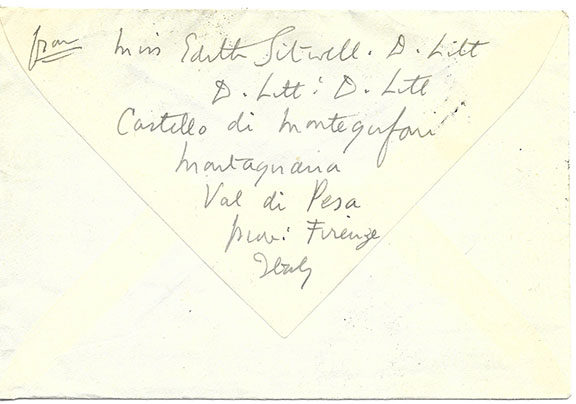 from Miss Edith Sitwell. D. Litt
D. Litt: D. Litt
Castello di Montegufoni
Montagnana
Val di Pesa
prov: Firenze
Italy